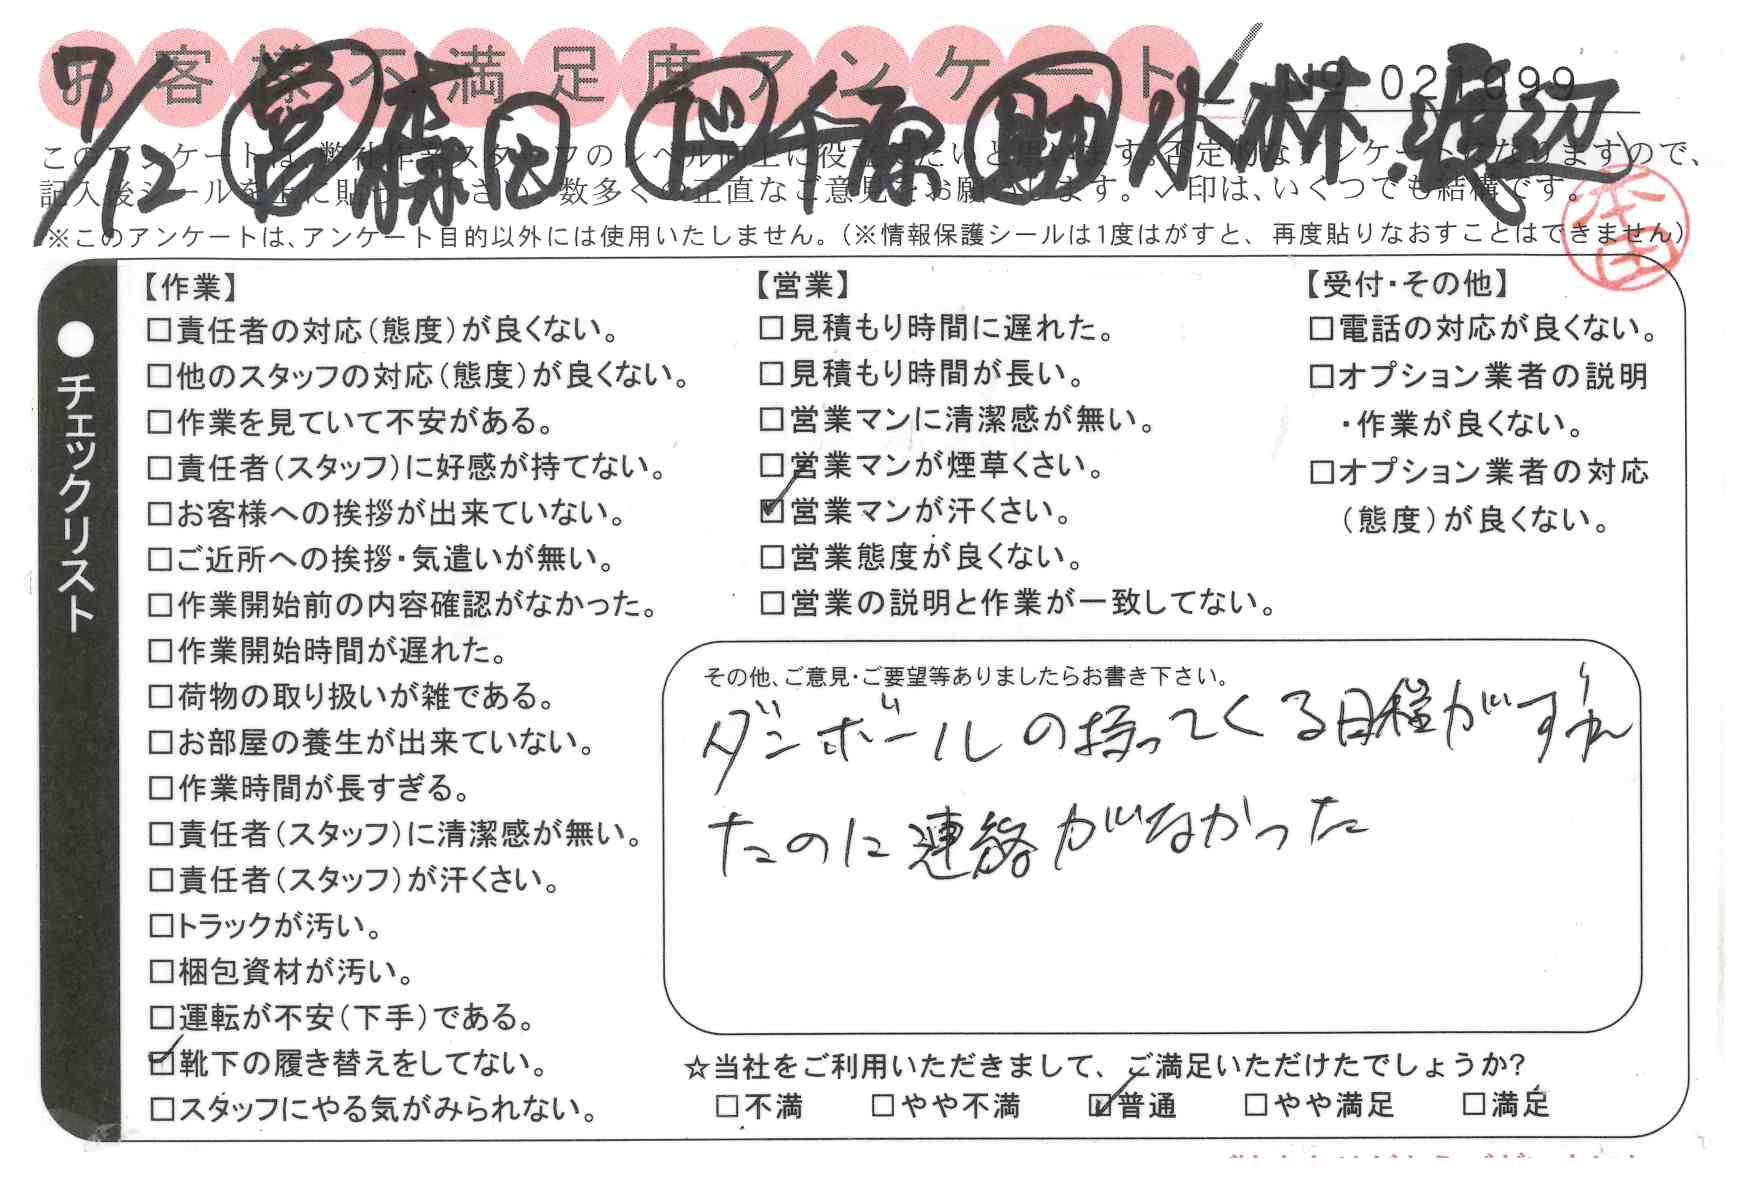 お客様不満足度アンケート
№ 021099
7/12 営 森田 ド 千原 助 水林 渡辺
このアンケートは、弊社作業スタッフのレベル向上に役立てたいと思います。否定的なアンケートになりますので、
記入後シールを上に貼って下さい。数多くの正直なご意見をお願いします。✓印は、いくつでも結構です。
※このアンケートは、アンケート目的以外には使用いたしません。(※情報保護シールは1度はがすと、再度貼りなおすことはできません)
本田
●チェックリスト
【作業】
□責任者の対応(態度)が良くない。
□他のスタッフの対応(態度)が良くない。
□作業を見ていて不安がある。
□責任者(スタッフ)に好感が持てない。
□お客様への挨拶が出来ていない。
□ご近所への挨拶・気遣いが無い。
□作業開始前の内容確認がなかった。
□作業開始時間が遅れた。
□荷物の取り扱いが雑である。
□お部屋の養生が出来ていない。
□作業時間が長すぎる。
□責任者(スタッフ)に清潔感が無い。
□責任者(スタッフ)が汗くさい。
□トラックが汚い。
□梱包資材が汚い。
□運転が不安(下手)である。
☑靴下の履き替えをしてない。
□スタッフにやる気がみられない。
【営業】
□見積もり時間に遅れた。
□見積もり時間が長い。
□営業マンに清潔感が無い。
□営業マンが煙草くさい。
☑営業マンが汗くさい。
□営業態度が良くない。
□営業の説明と作業が一致してない。
【受付・その他】
□電話の対応が良くない。
□オプション業者の説明
・作業が良くない。
□オプション業者の対応
(態度)が良くない。
その他、ご意見・ご要望等ありましたらお書き下さい。
ダンボールの持ってくる日程がずれ
たのに連絡がなかった
☆当社をご利用いただきまして、ご満足いただけたでしょうか?
□不満 □やや不満 ☑普通 □やや満足 □満足